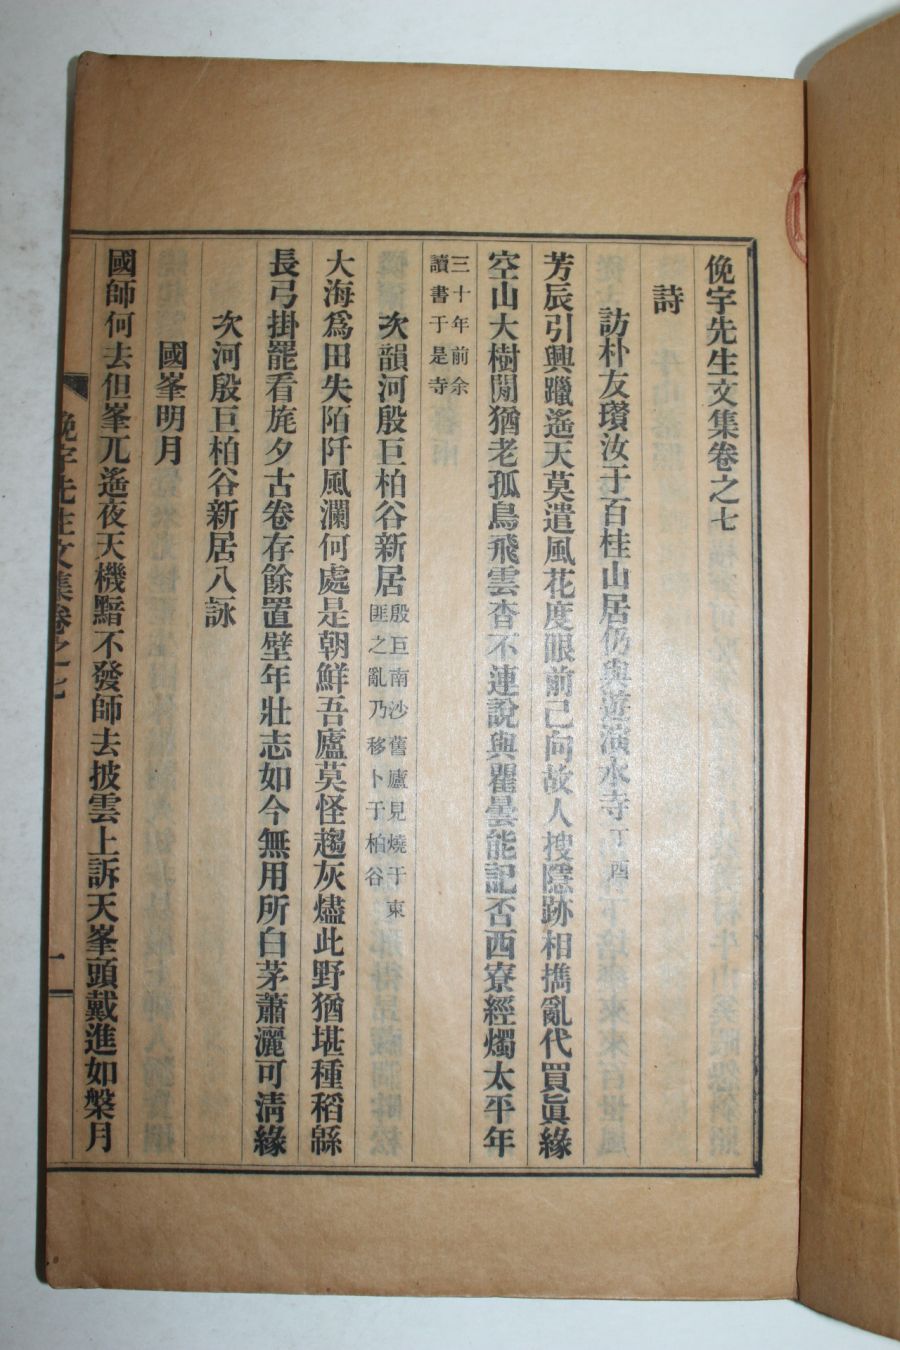 俛宇先生文集卷之七
詩
訪朴友瓚汝于百桂山居仍與遊演水寺 丁酉
芳辰引興躐遙天莫遣風花度眼前已向故人搜隱跡相攜亂代買眞緣
空山大樹閒猶老孤鳥飛雲杳不連說與瞿曇能記否西寮經燭太平年
三十年前余
讀書于是寺
次韻河殷巨柏谷新居 殷巨南沙舊廬見燒于東
匪之亂乃移卜于柏谷
大海爲田失陌阡風瀾何處是朝鮮吾廬莫怪趨灰燼此野猶堪種稻緜
長弓掛罷看旄夕古卷存餘置壁年壯志如今無用所白茅蕭灑可淸緣
次河殷巨柏谷新居八詠
國峯明月
國師何去但峯兀遙夜天機黯不發師去披雲上訴天峯頭戴進如槃月
俛宇先生文集卷之七
一